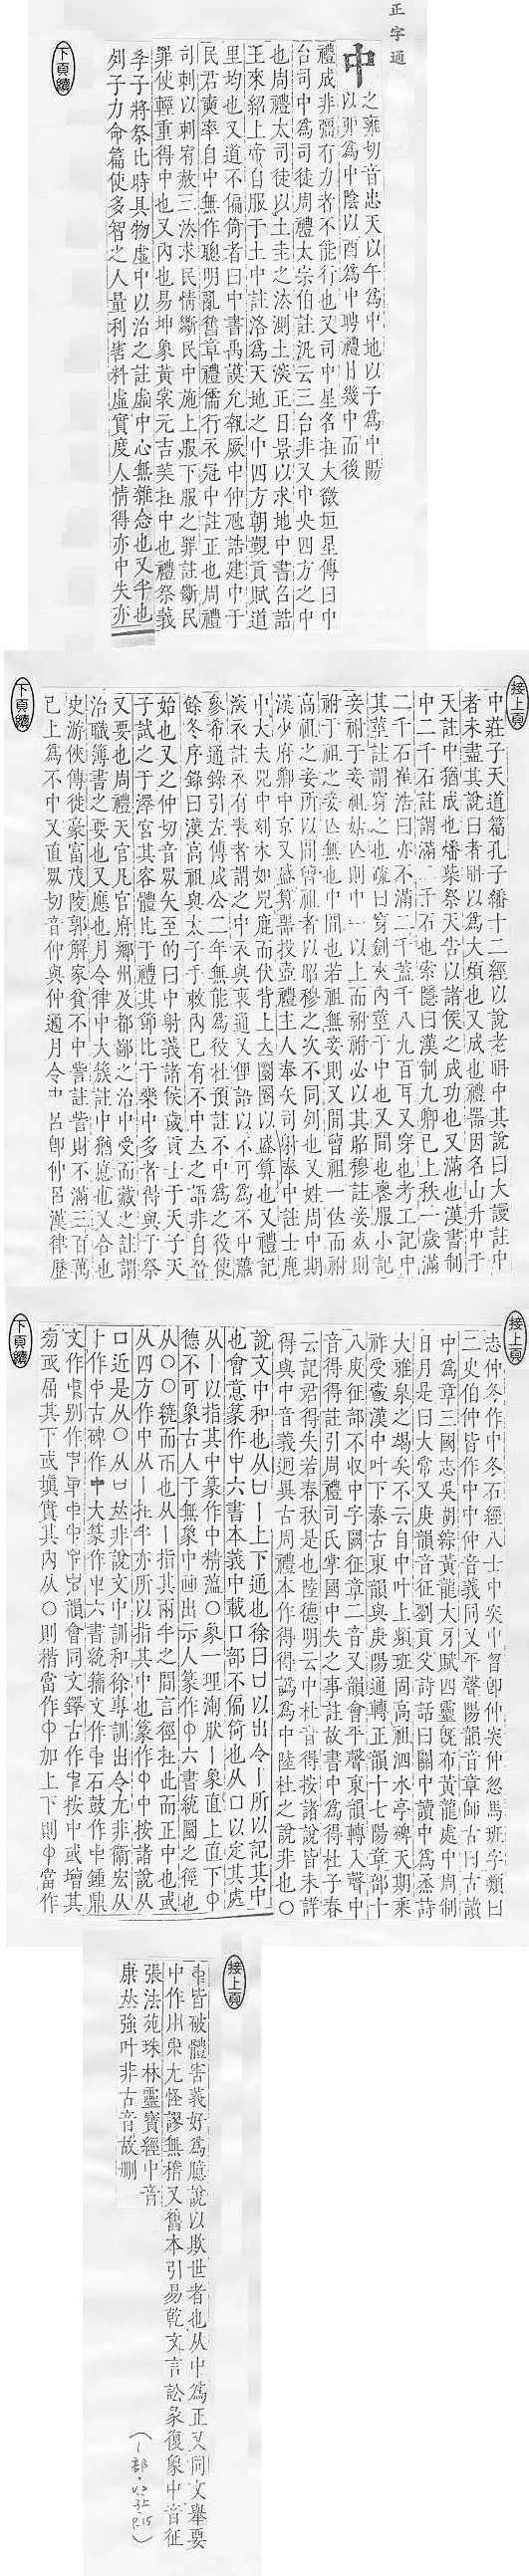 正字通
中
之雍切音忠天以午爲中地以子爲中陽
以卯爲中陰以酉爲中聘禮日幾中而後
禮成非彊有力者不能行也又司中星名在太微垣星傳曰中
台司中爲司徒周禮太宗伯註沇云三台非又中央四方之中
也周禮大司徒以土圭之法測土深正日景以求地中書召誥
王來紹上帝自服于土中註洛爲天地之中四方朝覲貢賦道
里均也又道不偏倚者曰中書禹謨允執厥中仲虺誥建中于
民君奭率自中無作聰明亂舊章禮儒行衣冠中註正也周禮
司刺以刺宥赦三法求民情斷民中施上服下服之罪註斷民
罪使輕重得中也又內也易坤象黃裳元吉美在中也禮祭義
孝子將祭比時具物虛中以治之註虛中心無雜念也又半也
列子力命篇使多智之人量利害料虛實度人情得亦中失亦
下頁續
接上頁
中莊子天道篇孔子繙十二經以說老聃中其說曰大謾註中
者未盡其說曰者聃以爲大煩也又成也禮器因名山升中于
天註中猶成也燔柴祭天告以諸侯之成功也又滿也漢書制
中二千石註謂滿二千石也索隱曰漢制九卿已上秩一歲滿
二千石崔浩曰亦不滿二千蓋千八九百耳又穿也考工記中
其莖註謂穿之也疏曰穿劍夾內莖于中也又間也喪服小記
妾祔于妾祖姑亡則中一以上而祔祔必以其昭穆註妾亡則
祔于祖之妾亡無也中間也若祖無妾則又間曾祖一位而祔
高祖之妾所以間曾祖者以昭穆之次不同列也又姓周中期
漢少府卿中京又盛算器投壺禮主人奉矢司射奉中註士鹿
中大夫兕中刻木如兕鹿而伏背上立圜圈以盛算也又禮記
深衣註衣有表者謂之中衣與衷通又俚語以不可爲不中蕭
參希通錄引左傳成公二年無能爲役杜預註不中爲之役使
餘冬序錄曰漢高祖與太子手敕內已有不中立之語非自晉
始也又之仲切音眾矢至的曰中射義諸侯歲貢士于天子天
子試之于澤宮其容體比于禮其節比于樂中多者得與于祭
又要也周禮天官凡官府鄉州及都鄙之治中受而藏之註謂
治職簿書之要也又應也月令律中大簇註中猶應也又合也
史游俠傳徙豪富茂陵郭解家貧不中訾註訾財不滿三百萬
已上爲不中又直眾切音仲與仲通月令中呂卽仲呂漢律歷
下頁續
接上頁
志仲冬作中冬石經八士中突中曶卽仲突仲忽馬班字類曰
二史伯仲皆作中中仲音義同又平聲陽韻音章師古曰古讀
中爲章三國志吳胡綜黃龍大牙賦四靈旣布黃龍處中周制
日月是曰太常又庚韻音征劉貢父詩話曰關中讀中爲烝詩
大雅泉之竭矣不云自中叶上頻班固高祖泗水亭碑天期乘
祚受爵漢中叶下秦古東韻與庚陽通轉正韻十七陽章部十
八庚征部不收中字闕征章二音又韻會平聲東韻轉入聲中
音得得註引周禮司氏掌國中失之事註故書中爲得杜子春
云記君得失若春秋是也陸德明云中杜音得按諸說皆未詳
得與中音義迥異古周禮本作得得譌爲中陸杜之說非也○
說文中和也从口丨上下通也徐曰口以出令丨所以記其中
也會意篆作中六書本義中載口部不偏倚也从口以定其處
从丨以指其中篆作中精蘊○象一理渾然丨象直上直下中
德不可象古人于無象中畫出示人篆作中六書統圜之徑也
从○○繞而帀也从丨指其兩半之間言徑在此而正中也或
从四方作中从丨在半亦所以指其中也篆作中中按諸說从
口近是从○从曰竝非說文中訓和徐專訓出令尤非衞宏从
卜作中古碑作中大篆作中六書統籀文作中石鼓作中鍾鼎
文作中別作中中中中中韻會同文鐸古作中按中或增其
旁或屈其下或塡實其內从○則楷當作中加上下則中當作
下頁續
接上頁
中皆破體害義好爲臆說以欺世者也从中爲正又同文舉要
中作尤怪謬無稽又舊本引易乾文言訟彖復象中音征
張法苑珠林靈寶經中音
康竝強叶非古音故刪
(丨部.P.15)